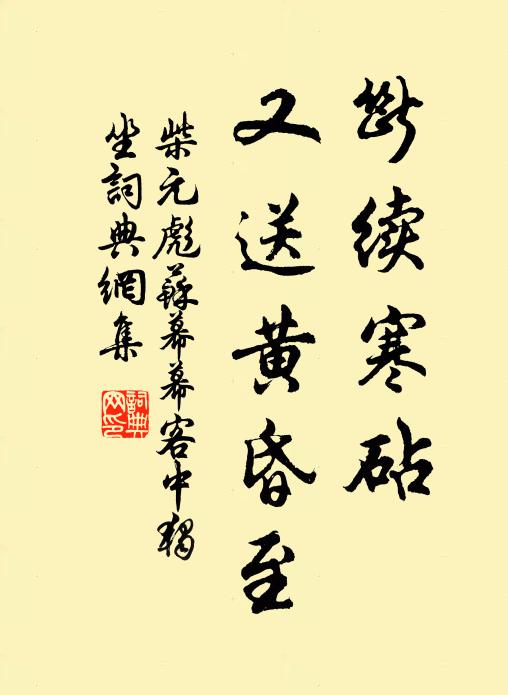 断续寒砧
又送黄昏至
柴元彪蘇幕幕客中獨
坐詞典網集
詞典网印